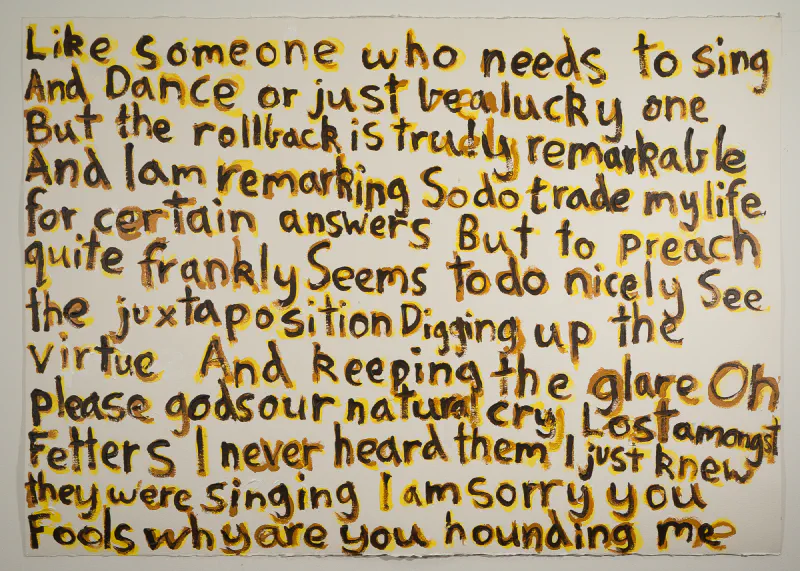 Like someone who needs to sing
And Dance or just be a lucky one
But the rollback is trudly remarkable
And I am remarking So do trade my life
for certain answers But to preach
quite frankly Seems to do nicely See
the juxtaposition Digging up the
virtue And keeping the glare Oh
please gods our natural cry Lost amongst
Fetters I never heard them I just knew
they were singing I am sorry you
Fools why are you hounding me